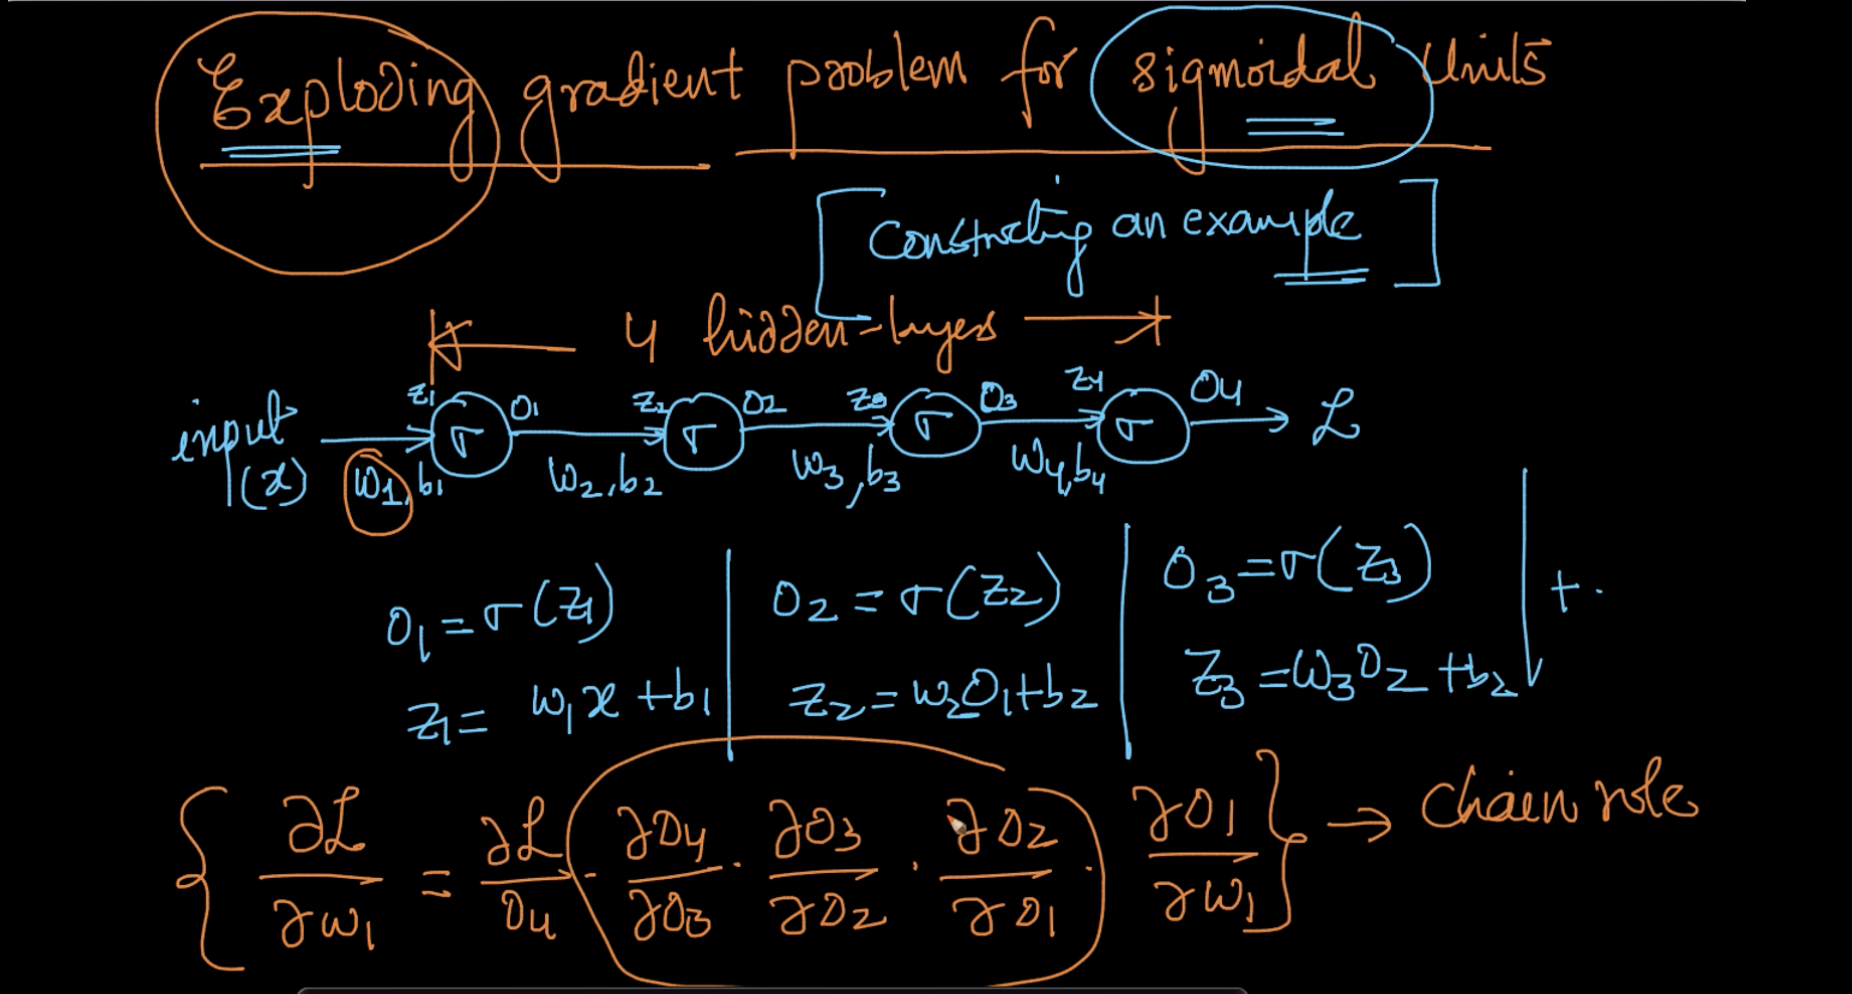 Exploding gradient problem for sigmoidal Units
[Constructing an example]
4 hidden-layers
z1 O1 z2 O2 z3 O3 z4 O4
input σ σ σ σ L
(x) W1, b1 W2, b2 W3, b3 W4, b4
O1 = σ(z1) | O2 = σ(z2) | O3 = σ(z3) | + .
z1 = w1x + b1 | z2 = w2O1 + b2 | z3 = w3O2 + b2
{ ∂L/∂w1 = ∂L/O4 · ∂O4/∂O3 · ∂O3/∂O2 · ∂O2/∂O1 · ∂O1/∂w1 } → Chain rule